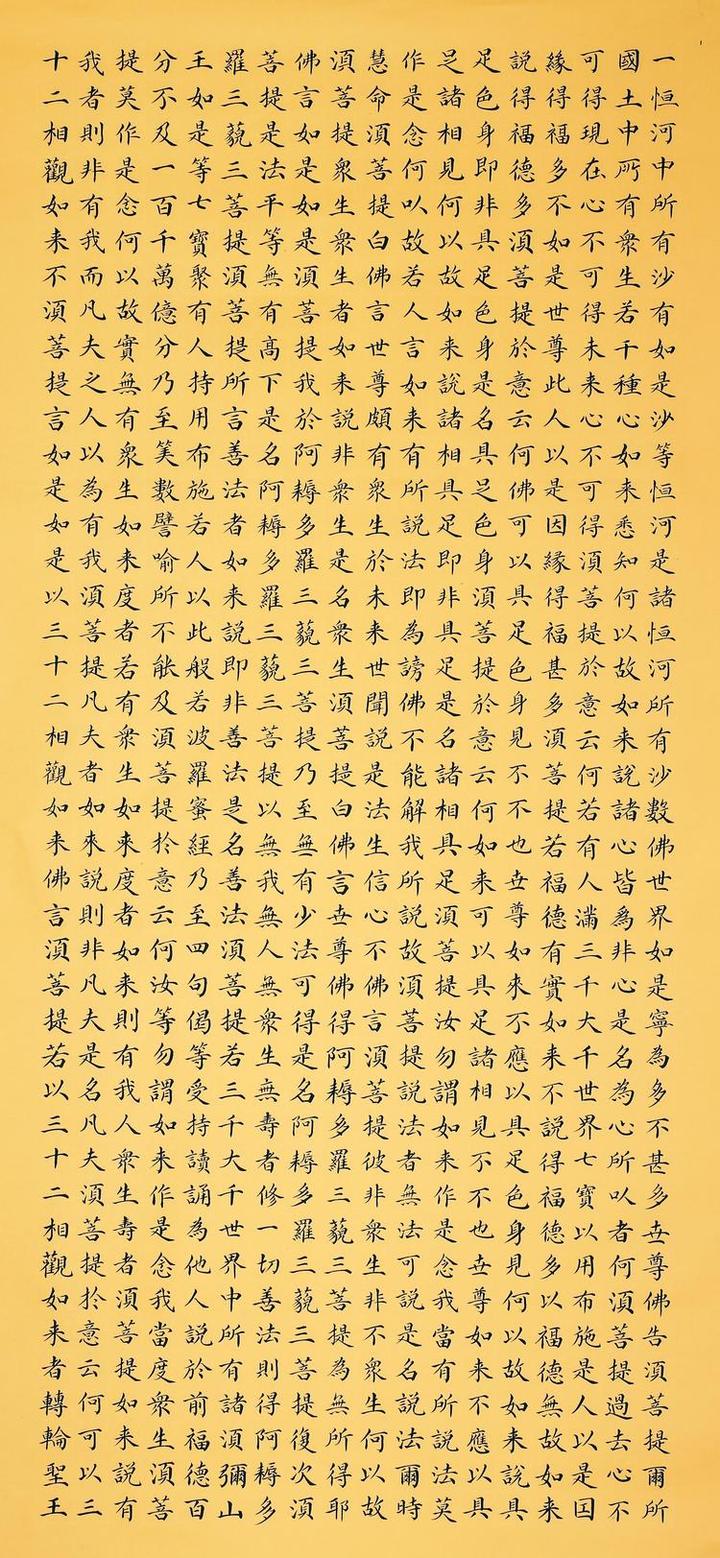 一恒河中所有沙有如是沙等恒河是諸恒河所有沙數佛世界如是寧為多不甚多世尊佛告須菩提爾所
國土中所有眾生若干種心如来悉知何以故如来說諸心皆為非心是名為心所以者何須菩提過去心不
可得現在心不可得未来心不可得須菩提於意云何若有人滿三千大千世界七寶以用布施是人以是因
緣得福多不如是世尊此人以是因緣得福甚多須菩提若福德有實如来不說得福德多以福德無故如来
說得福德多須菩提於意云何佛可以具足色身見不不也世尊如來不應以具足色身見何以故如来說具
足色身即非具足色身是名具足色身須菩提於意云何如来可以具足諸相見不不也世尊如来不應以具
足諸相見何以故如来說諸相具足即非具足是名諸相具足須菩提汝勿謂如来作是念我當有所說法莫
作是念何以故若人言如来有所說法即為謗佛不能解我所說故須菩提說法者無法可說是名說法爾時
慧命須菩提白佛言世尊頗有眾生於未来世聞說是法生信心不佛言須菩提彼非眾生非不眾生何以故
須菩提眾生眾生者如来說非眾生是名眾生須菩提白佛言世尊佛得阿耨多羅三藐三菩提為無所得耶
佛言如是如是須菩提我於阿耨多羅三藐三菩提乃至無有少法可得是名阿耨多羅三藐三菩提復次須
菩提是法平等無有高下是名阿耨多羅三藐三菩提以無我無人無眾生無壽者修一切善法則得阿耨多
羅三藐三菩提須菩提所言善法者如来說即非善法是名善法須菩提若三千大千世界中所有諸須彌山
王如是等七寶聚有人持用布施若人以此般若波羅蜜經乃至四句偈等受持讀誦為他人說於前福德百
分不及一百千萬億分乃至筭數譬喻所不能及須菩提於意云何汝等勿謂如来作是念我當度眾生須菩
提莫作是念何以故實無有眾生如来度者若有眾生如来度者如来則有我人眾生壽者須菩提如来說有
我者則非有我而凡夫之人以為有我須菩提凡夫者如來說則非凡夫是名凡夫須菩提於意云何可以三
十二相觀如来不須菩提言如是如是以三十二相觀如来佛言須菩提若以三十二相觀如来者轉輪聖王